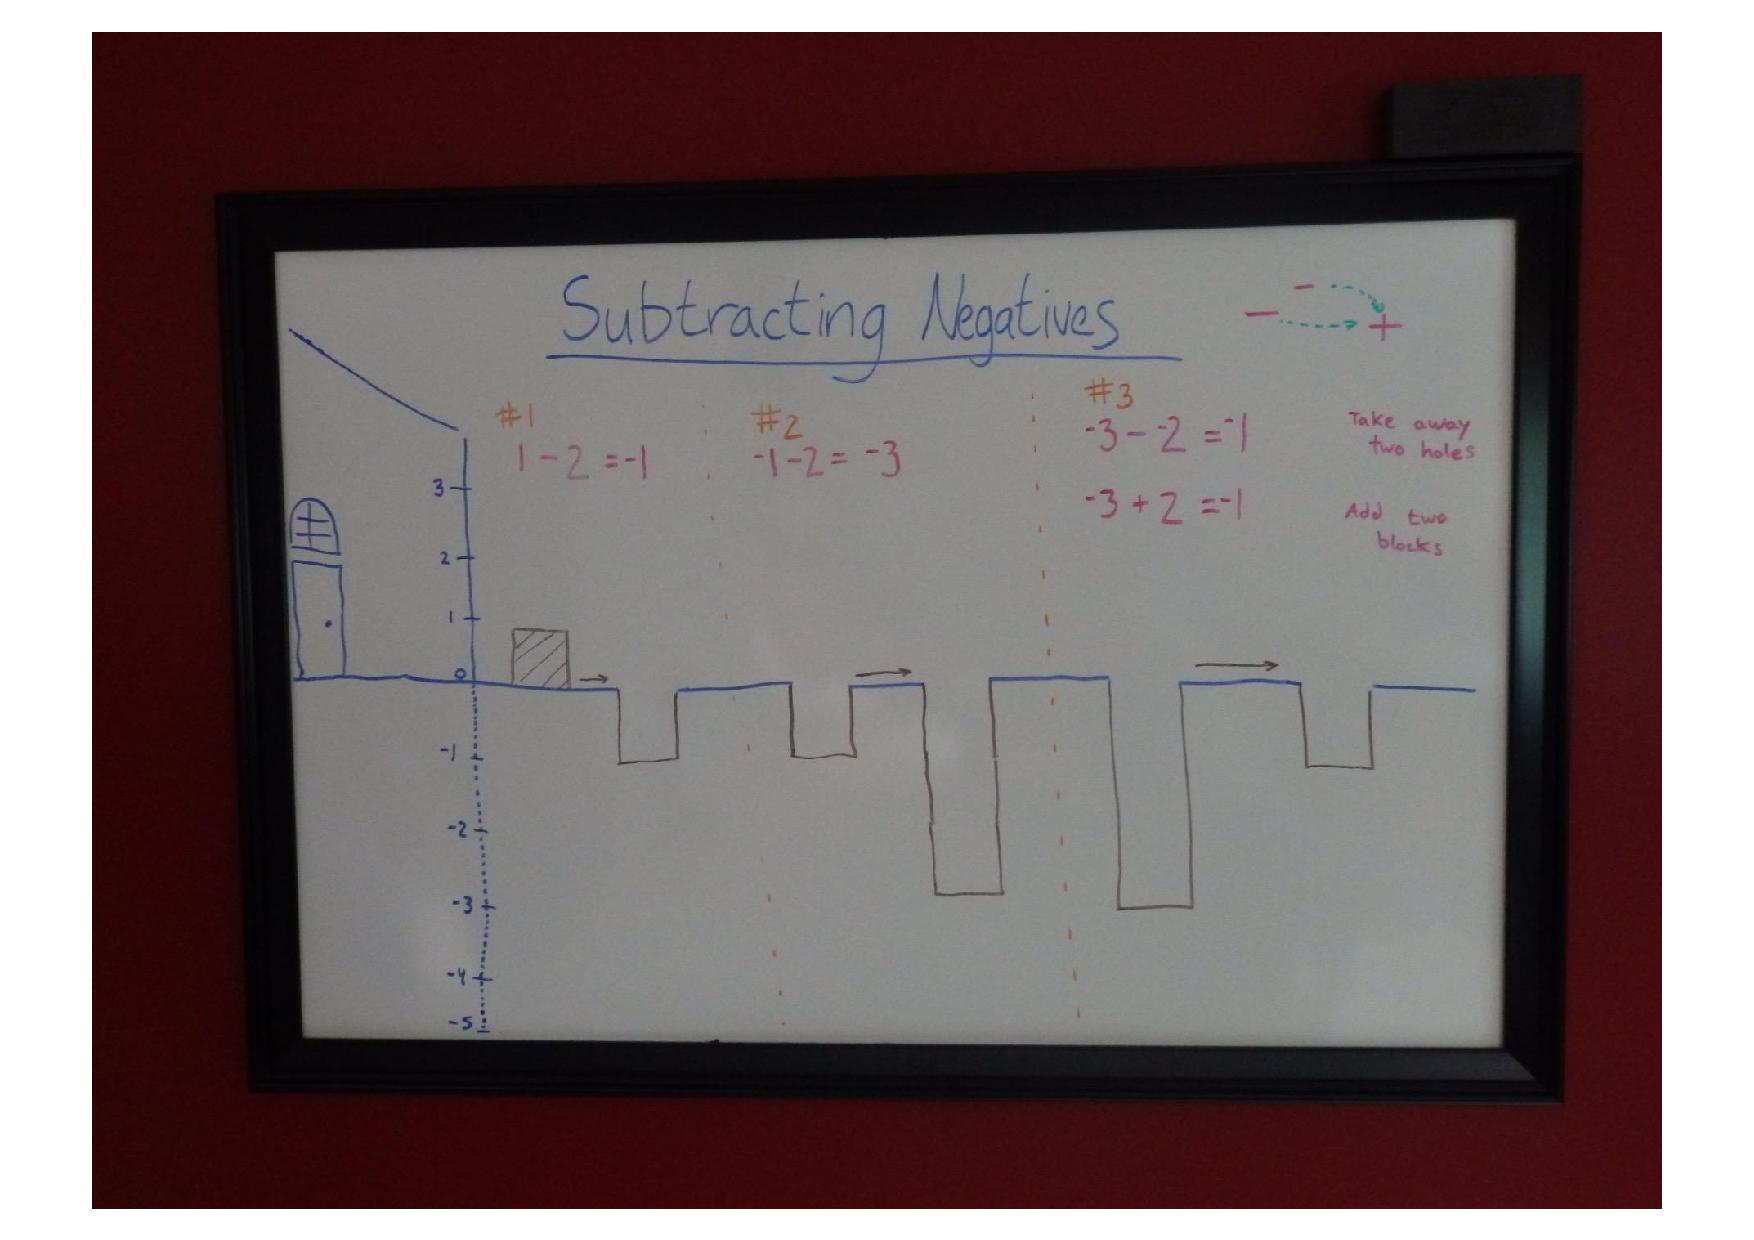 Subtracting Negatives
- - +
#1
1 - 2 = -1
#2
-1 - 2 = -3
#3
-3 - -2 = -1
Take away
two holes
-3 + 2 = -1
Add two
blocks
3
2
1
0
-1
-2
-3
-4
-5